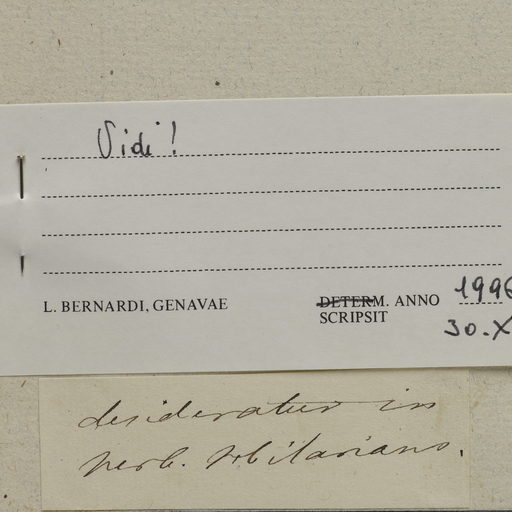 Vidi!
L. BERNARDI, GENAVAE
DETERM. ANNO 1996
SCRIPSIT 30.X
desideratur in
herb.